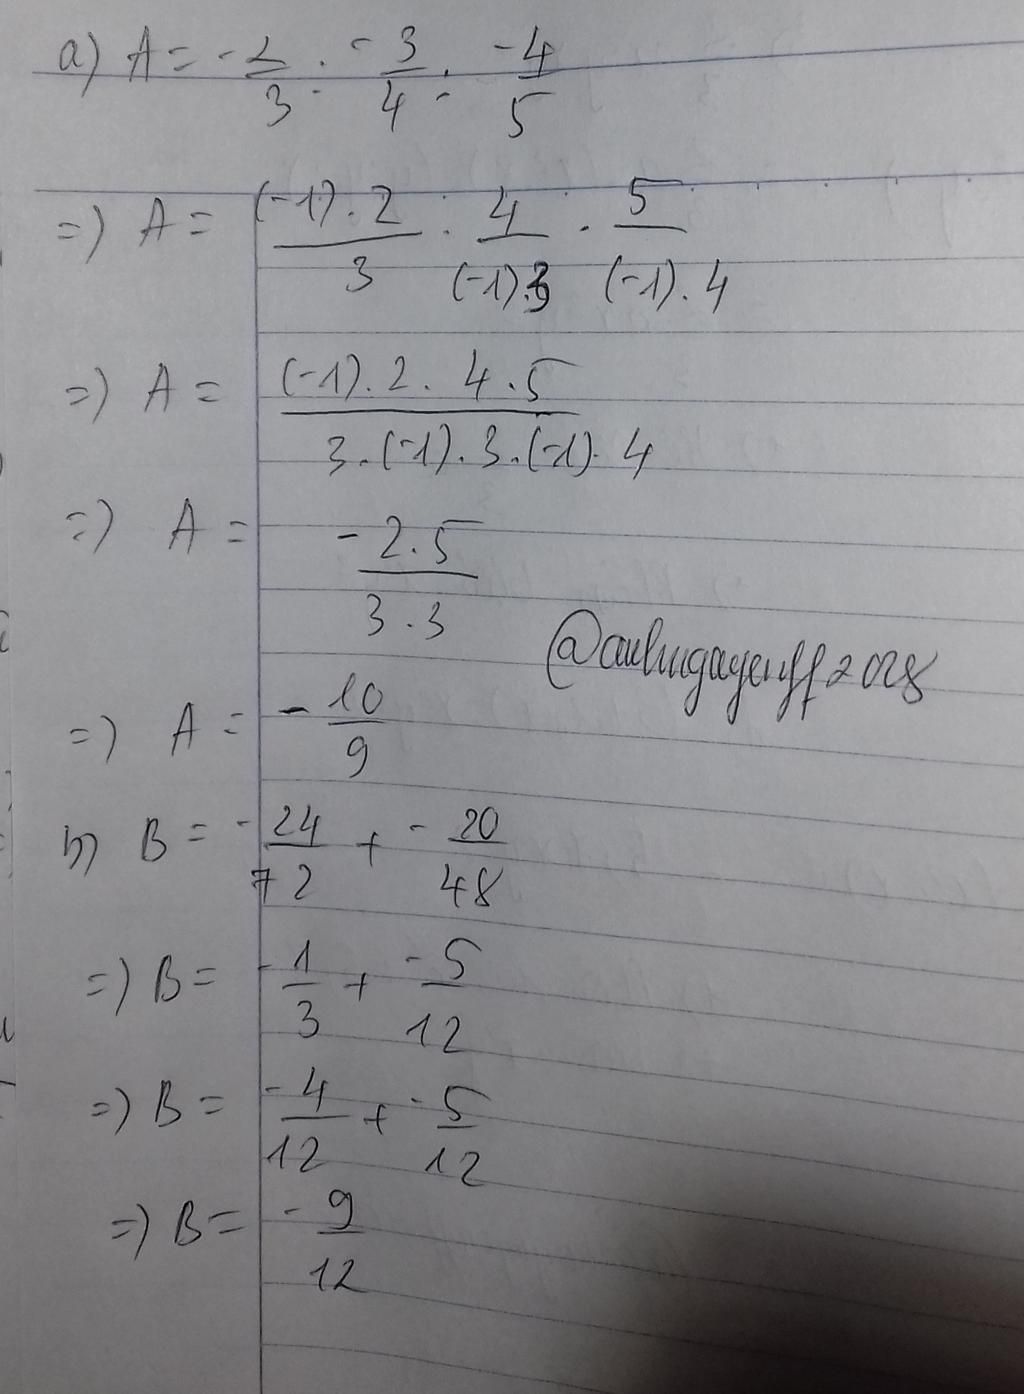 a) A = -2/3 : -3/4 : -4/5
=) A = (-1).2/3 . 4/(-1).3 . 5/(-1).4
=) A = (-1).2.4.5/3.(-1).3.(-1).4
=) A = -2.5/3.3
=) A = -10/9
b) B = -24/72 + -20/48
=) B = -1/3 + -5/12
=) B = -4/12 + -5/12
=) B = -9/12